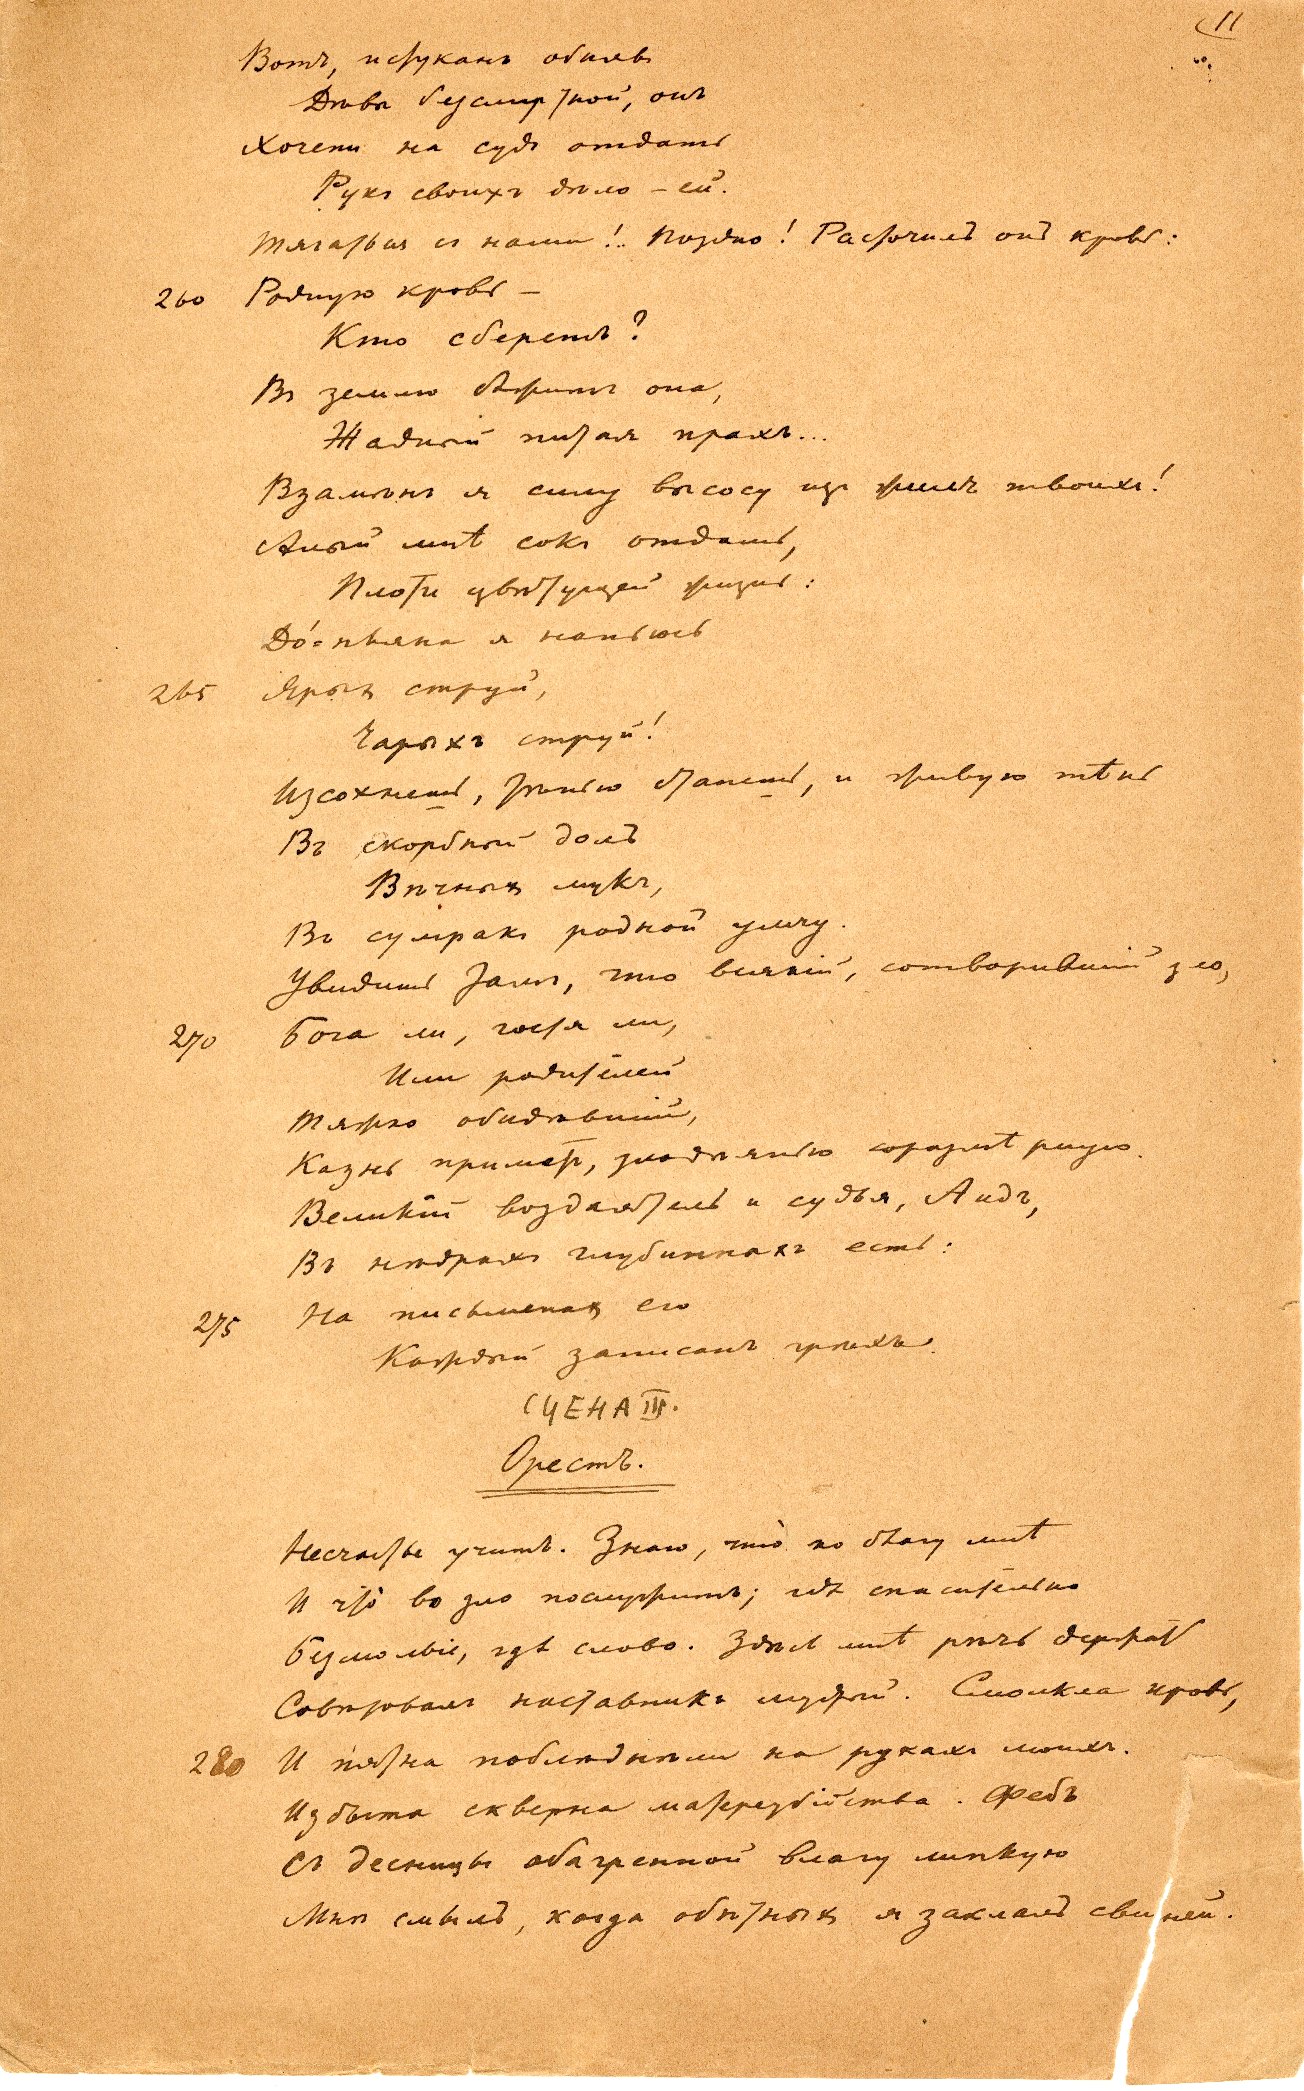 11
Вотъ, истуканъ обнявъ
Дѣвы безсмертной, онъ
Хочетъ на судъ отдать
Рукъ своихъ дѣло – ей.
Тягаться съ нами!.. Поздно! Расточилъ онъ кровь:
260 Родную кровь –
Кто сберетъ?
Въ землю бѣжитъ она,
Жадный питая прахъ...
Взамѣнъ я силу высосу изъ жилъ твоихъ!
Алый мнѣ сокъ отдашь,
Плоти цвѣтущей жизнь:
До́-пьяна я напьюсь
265 Ярыхъ струй,
Чарыхъ струй!
Изсохнешь, тѣнью станешь, и живую тѣнь
Въ скорбный долъ
Вѣчныхъ мукъ,
Въ сумракъ родной умчу.
Увидишь тамъ, что всякій, сотворившій зло,
270 Бога ли, гостя ли,
Или родителей
Тяжко обидѣвшій,
Казнь приметъ, злодѣянью соразмѣрную.
Великій воздаятель и судья, Аидъ,
Въ нѣдрахъ глубинныхъ есть:
275 На письменахъ его
Каждый записанъ грѣхъ.
СЦЕНА III.
Орестъ.
Несчастье учитъ. Знаю, что̀ ко благу мнѣ
И что̀ во зло послужитъ; гдѣ спасительно
Безмолвіе, гдѣ слово. Здѣсь мнѣ рѣчь держать
Совѣтовалъ наставникъ мудрый. Смолкла кровь,
280 И пятна поблѣднѣли на рукахъ моихъ.
Избыта скверна матереубійства. Фебъ
Съ десницы обагренной влагу липкую
Мнѣ смылъ, когда обѣтныхъ я заклалъ свиней.